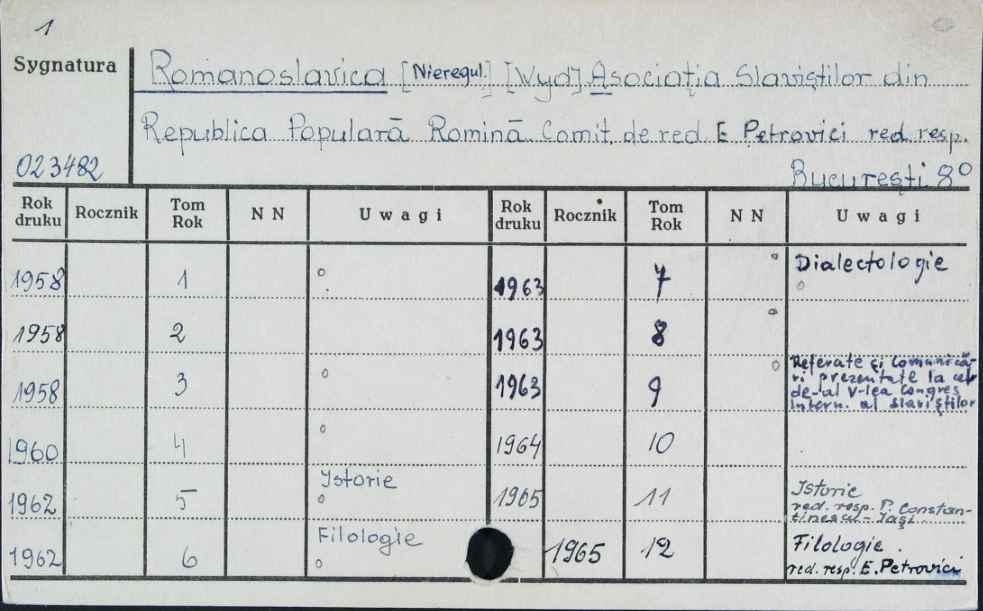 1
Sygnatura
Romanoslavica [Nieregul.] [Wyd] Asociaţia Slaviştilor din
Republica Populară Romînă Comit. de red. E Petrovici red. resp.
023482
Bucureşti 8°
Rok druku Rocznik Tom Rok N N Uwagi Rok druku Rocznik Tom Rok N N Uwagi
1958 1 1963 7 Dialectologie
1958 2 1963 8
1958 3 1963 9 Referate şi comunică-
ri prezentate la cel
de-al V-lea Congres
intern. al slaviştilor
1960 4 1964 10
1962 5 Istorie 1965 11 Istorie
red. resp. P. Constan-
tinescu-Iaşi.
1962 6 Filologie 1965 12 Filologie.
red. resp. E. Petrovici